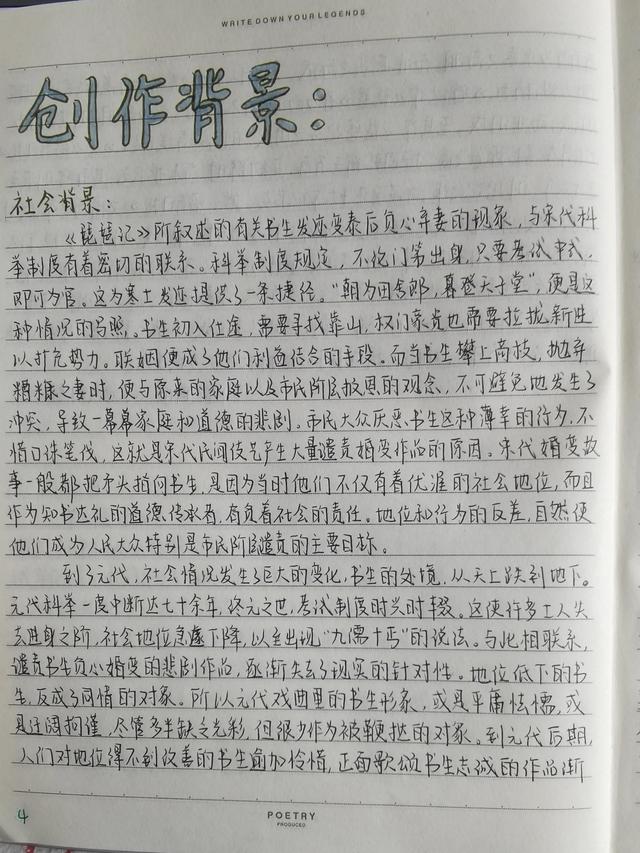 WRITE DOWN YOUR LEGENDS
创作背景：
社会背景：
《琵琶记》所叙述的有关书生发迹变泰后负心弃妻的现象，与宋代科
举制度有着密切的联系。科举制度规定，不论门第出身，只要考试中式，
即可为官。这为寒士发迹提供了一条捷径。“朝为田舍郎，暮登天子堂”，便是这
种情况的写照。书生初入仕途，需要寻找靠山，权门豪贵也需要拉拢新进
以扩充势力。联姻便成了他们利益结合的手段。而当书生攀上高枝，抛弃
糟糠之妻时，便与原来的家庭以及市民阶层报恩的观念，不可避免地发生了
冲突，导致一幕幕家庭和道德的悲剧。市民大众厌恶书生这种薄幸的行为，不
惜口诛笔伐，这就是宋代民间伎艺产生大量谴责婚变作品的原因。宋代婚变故
事一般都把矛头指向书生，是因为当时他们不仅有着优渥的社会地位，而且
作为知书达礼的道德传承者，肩负着社会的责任。地位和行为的反差，自然使
他们成为人民大众特别是市民阶层谴责的主要目标。
到了元代，社会情况发生了巨大的变化，书生的处境，从天上跌到地下。
元代科举一度中断达七十余年，终元之世，考试制度时兴时辍。这使许多士人失
去进身之阶，社会地位急遽下降，以至出现“九儒十丐”的说法。与此相联系，
谴责书生负心婚变的悲剧作品，逐渐失去了现实的针对性。地位低下的书
生，反成了同情的对象。所以元代戏曲里的书生形象，或是平庸怯懦，或
是迂阔拘谨，尽管多半缺乏光彩，但很少作为被鞭挞的对象。到元代后期，
人们对地位得不到改善的书生愈加怜惜，正面歌颂书生志诚的作品渐
4
POETRY
PRODUCED